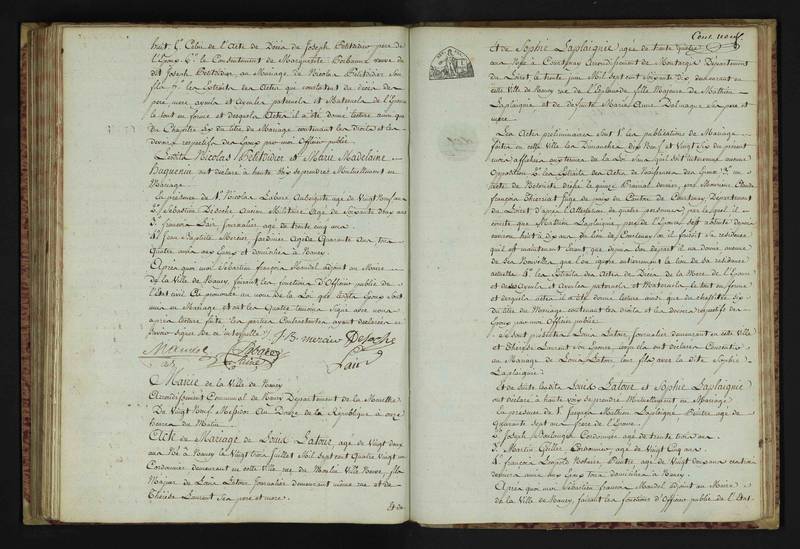 huit 5.° Celui de l'Acte de Décès de Joseph Petitdidier pere de
l'Epoux 6.° le Consentement de Marguerite veuve de
dit Joseph Petitdidier au Mariage de Nicolas Petitdidier son
fils 7.° les Extraits des Actes qui constatent du décès des
pere, mere, ayeuls et Ayeules paternels et Maternels de l'Epouse
le tout en forme et desquels Actes il a été donné lecture ainsi que
du Chapitre Six du titre du Mariage contenant les droits et les
devoirs respectifs des Epoux par moi Officier public
Lesdits Nicolas Petitdidier et Marie Madelaine
Huguenin ont déclaré à haute voix se prendre Mutuellement en
Mariage
En présence de 1.° Nicolas Labore Aubergiste agé de Vingt Neuf ans
2.° Sebastien Desoche Ancien Militaire Agé de Soixante ans
3.° francois Lair Journalier agé de trente cinq ans
4.° Jean Baptiste Mercier Jardinier Agé de Quarante ans
Quatre amis des Epoux et domiciliés à Nancy.
Après quoi moi Sébastien françois Mandel adjoint au Maire
de la Ville de Nancy, faisant les fonctions d'Officier public de
l'Etat civil Ai prononcé au nom de la Loi que lesdits Epoux sont
unis en Mariage et ont les Quatre temoins Signé avec nous
après lecture faite les parties Contractantes ayant déclaré ne
savoir signer de ce interpellé J. B. mercier Desoche
Lair
Mairie de la Ville de Nancy
Arrondissement Communal de Nancy Département de la Meurthe
Du Vingt Neuf Messidor An Douze de la République à onze
heures du Matin
Acte de Mariage de Louis Latour, agé de Vingt deux
ans Né à Nancy le Vingt trois Juillet Mil Sept cent Quatre Vingt un
Cordonnier demeurant en cette Ville rue du Moulin Ville Neuve, fils
Majeur de Louis Latour Journalier demeurant même rue et de
Thérèse Laurent Ses pere et mere.
Et de
Cent neuf
Et de Sophie Laplaignie agée de trente Quatre
ans Née à Courtenay Arrondissement de Montargis Département
du Loiret le trente Juin Mil Sept cent Soixante dix demeurant en
cette Ville de Nancy rue de l'Esplanade fille Majeure de Mathieu
Laplaignie et de défunte Marie Anne Ses pere et
mere
Les Actes préliminaires Sont 1.° les publications de Mariage
faites en cette Ville les Dimanches dix Neuf et Vingt Six du présent
mois affichées aux termes de la Loi Sans qu'il Soit survenu aucune
Opposition 2.° les Extraits des Actes de Naissances des Epoux 3.° un
Acte de Notoriété dressé le quinze Prairial dernier, par Monsieur Claude
françois Thierriat Juge de paix du Canton de Courtenay Département
du Loiret d'après l'Attestation de quatre personnes par lequel il
conste que Mathieu Laplaignie, pere de l'Epouse s'est absenté depuis
environ huit à dix ans du lieu de Courtenay où il faisait sa résidence
qu'il est maintenant absent que depuis son départ il n'a donné aucune
de Ses Nouvelles que l'on ignore entierement le lieu de Sa residence
actuelle 4.° les Extraits des Actes de Décès de la Mere de l'Epouse
et de Ses Ayeuls et Ayeules paternels et Maternels le tout en forme
et desquels actes il a été donné lecture ainsi que du chapitre Six
du titre du Mariage contenant les droits et les devoirs respectifs des
Epoux par moi Officier public
Se sont présentés Louis Latour Journalier demeurant en cette Ville
et Thérèse Laurent son Epouse lesquels ont déclaré Consentir
au Mariage de Louis Latour leur fils avec la dite Sophie
Laplaignie
Et de suite lesdits Louis Latour et Sophie Laplaignie
ont déclaré à haute voix se prendre Mutuellement en Mariage
En présence de 1.° françois Mathieu Laplaignie Peintre agé de
Quarante Sept ans frere de l'Epouse
2.° Joseph Boulanger Cordonnier agé de trente trois ans
3.° Martin Geiller Cordonnier, agé de Vingt Cinq ans
4.° françois Leopold Peintre, agé de Vingt deux ans
amis des Epoux tous domiciliés à Nancy.
Après quoi moi Sébastien francois Mandel adjoint au Maire
de la Ville de Nancy, faisant les fonctions d'Officier public de l'Etat